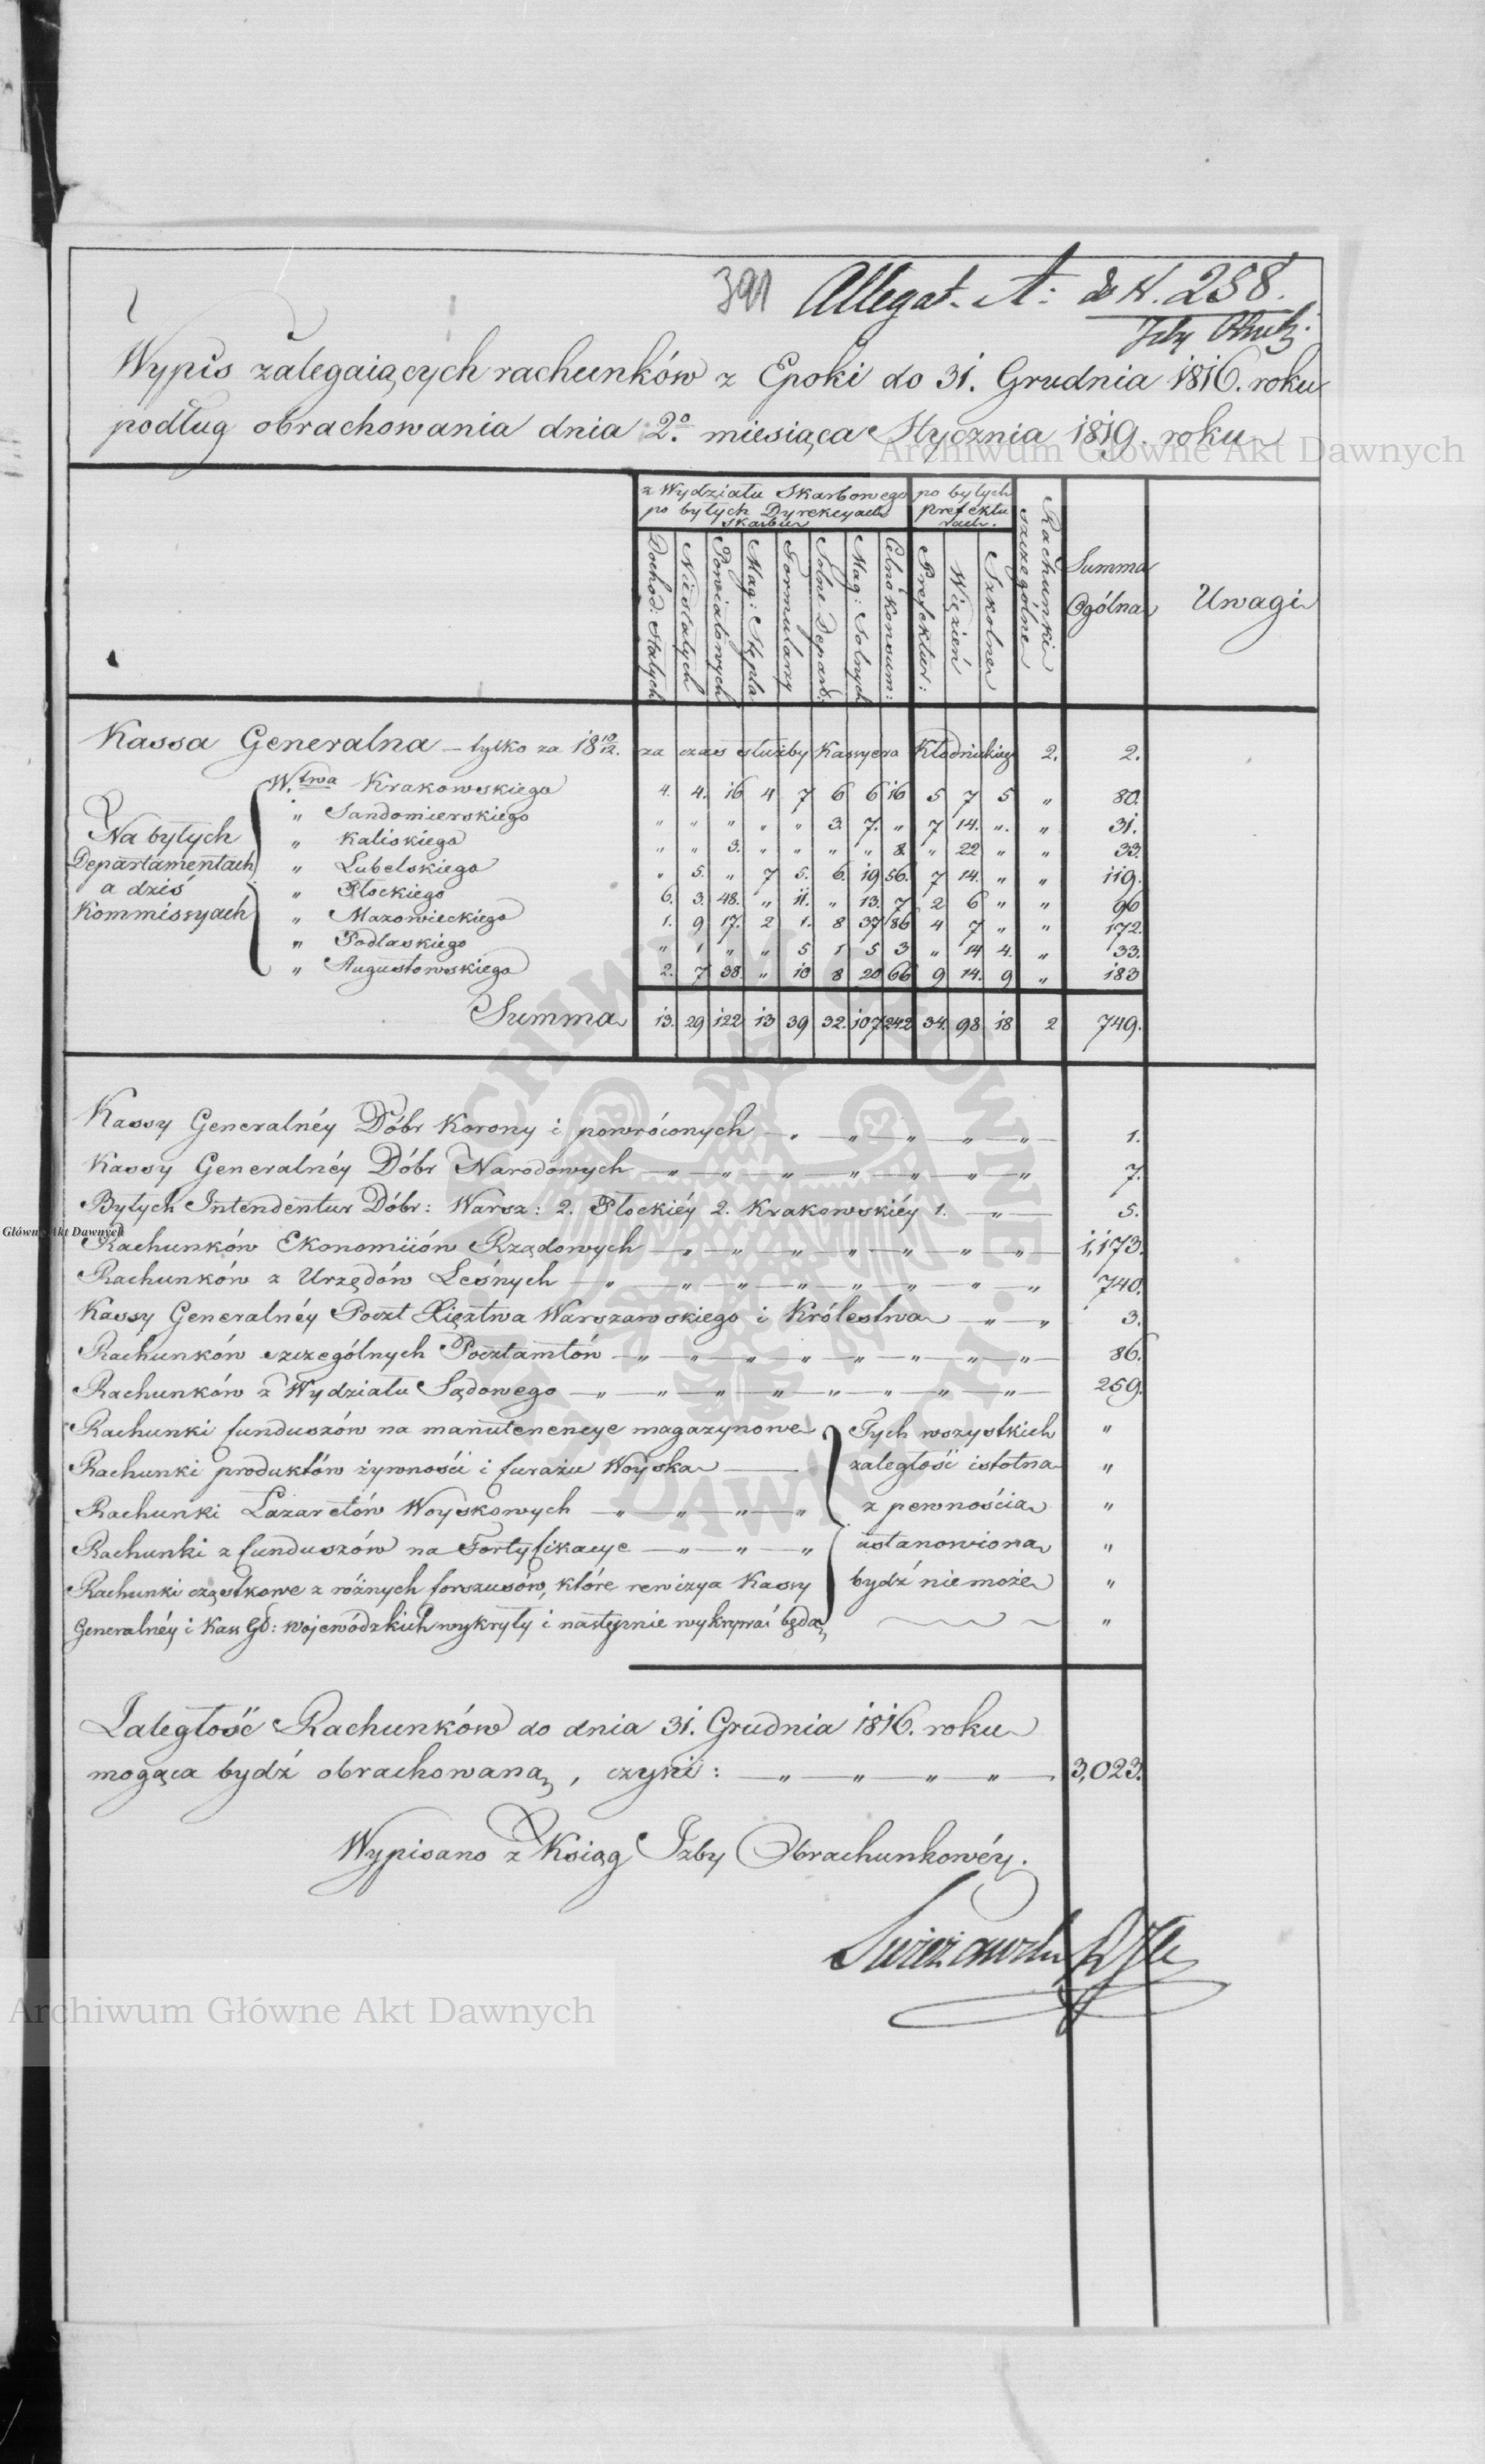 391 Allegat. A: do N. 238.
Izby Obrach:
Wypis zalegaiących rachunków z Epoki do 31. Grudnia 1816. roku
podług obrachowania dnia 2.º miesiąca Stycznia 1819. roku
z Wydziału Skarbowego po byłych Dyrekcyach Skarbu
po byłych Prefekturach.
Dochod: Stałych
Niestałych
Powiatowych
Mag: Stępla
Formularzy
Solne Depart:
Mag: Solnych
Celno konsum:
Prefektur:
Więzień
Szkolne
Rachunki szczególne
Summa Ogólna
Uwagi
Kassa Generalna – tylko za 18 10/12. za czas służby Kassyera 2. 2.
Na byłych Departamentach a dziś Kommissyach
W.twa Krakowskiego 4. 4. 16 4 7 6 6 16 5 7 5 " 80.
" Sandomierskiego " " " " " 3. 7. " 7 14. ". " 31.
" Kaliskiego " " 3. " " " " 8. " 22 " " 33.
" Lubelskiego " 5. " 7 5. 6. 19 56. 7 14. " " 119.
" Płockiego 6. 3. 48. " 11. " 13. 7 2 6 " " 96
" Mazowieckiego 1. 9 17. 2 1. 8 37 86 4 7 " " 172.
" Podlaskiego " 1 " " 5 1 5 3 " 14 4. " 33.
" Augustowskiego 2. 7 38. " 10 8 20 66 9 14. 9 " 183
Summa 13. 29 122 13 39 32. 107 242 34. 98 18 2 749.
Kassy Generalnéy Dóbr Korony i powróconych — " — " — " — " — " — 1.
Kassy Generalnéy Dóbr Narodowych — " — " — " — " — " — " — " 7.
Byłych Intendentur Dóbr: Warsz: 2. Płockiéy 2. Krakowskiéy 1. — " — 5.
Rachunków Ekonomiiów Rządowych — " — " — " — " — " — " — " — 1,173.
Rachunków z Urzędów Leśnych — " — " — " — " — " — " — " — " 740.
Kassy Generalnéy Poczt Xięztwa Warszawskiego i Królestwa — " — " 3.
Rachunków szczególnych Pocztamtów — " — " — " — " — " — " — " — " — 86.
Rachunków z Wydziału Sądowego — " — " — " — " — " — " — " — " — 259.
Rachunki funduszów na manutencye magazynowe Tych wszystkich "
Rachunki produktów żywności i furażu Woyska — zaległość istotna "
Rachunki Lazaretów Woyskowych — " — " — " — " z pewnością "
Rachunki z funduszów na Fortyfikacye — " — " — " ustanowiona "
Rachunki cząstkowe z różnych forszusów, które rewizya Kassy bydź nie może "
Generalnéy i Kass Gł: wojewódzkich wykryły i następnie wykrywać będą "
Zaległość Rachunków do dnia 31. Grudnia 1816. roku
mogąca bydź obrachowaną, czyni: — " — " — " — " — 3,023.
Wypisano z Ksiąg Izby Obrachunkowéy.
Archiwum Główne Akt Dawnych
Główne Akt Dawnych
Archiwum Główne Akt Dawnych
ARCHIWUM GŁÓWNE AKT DAWNYCH